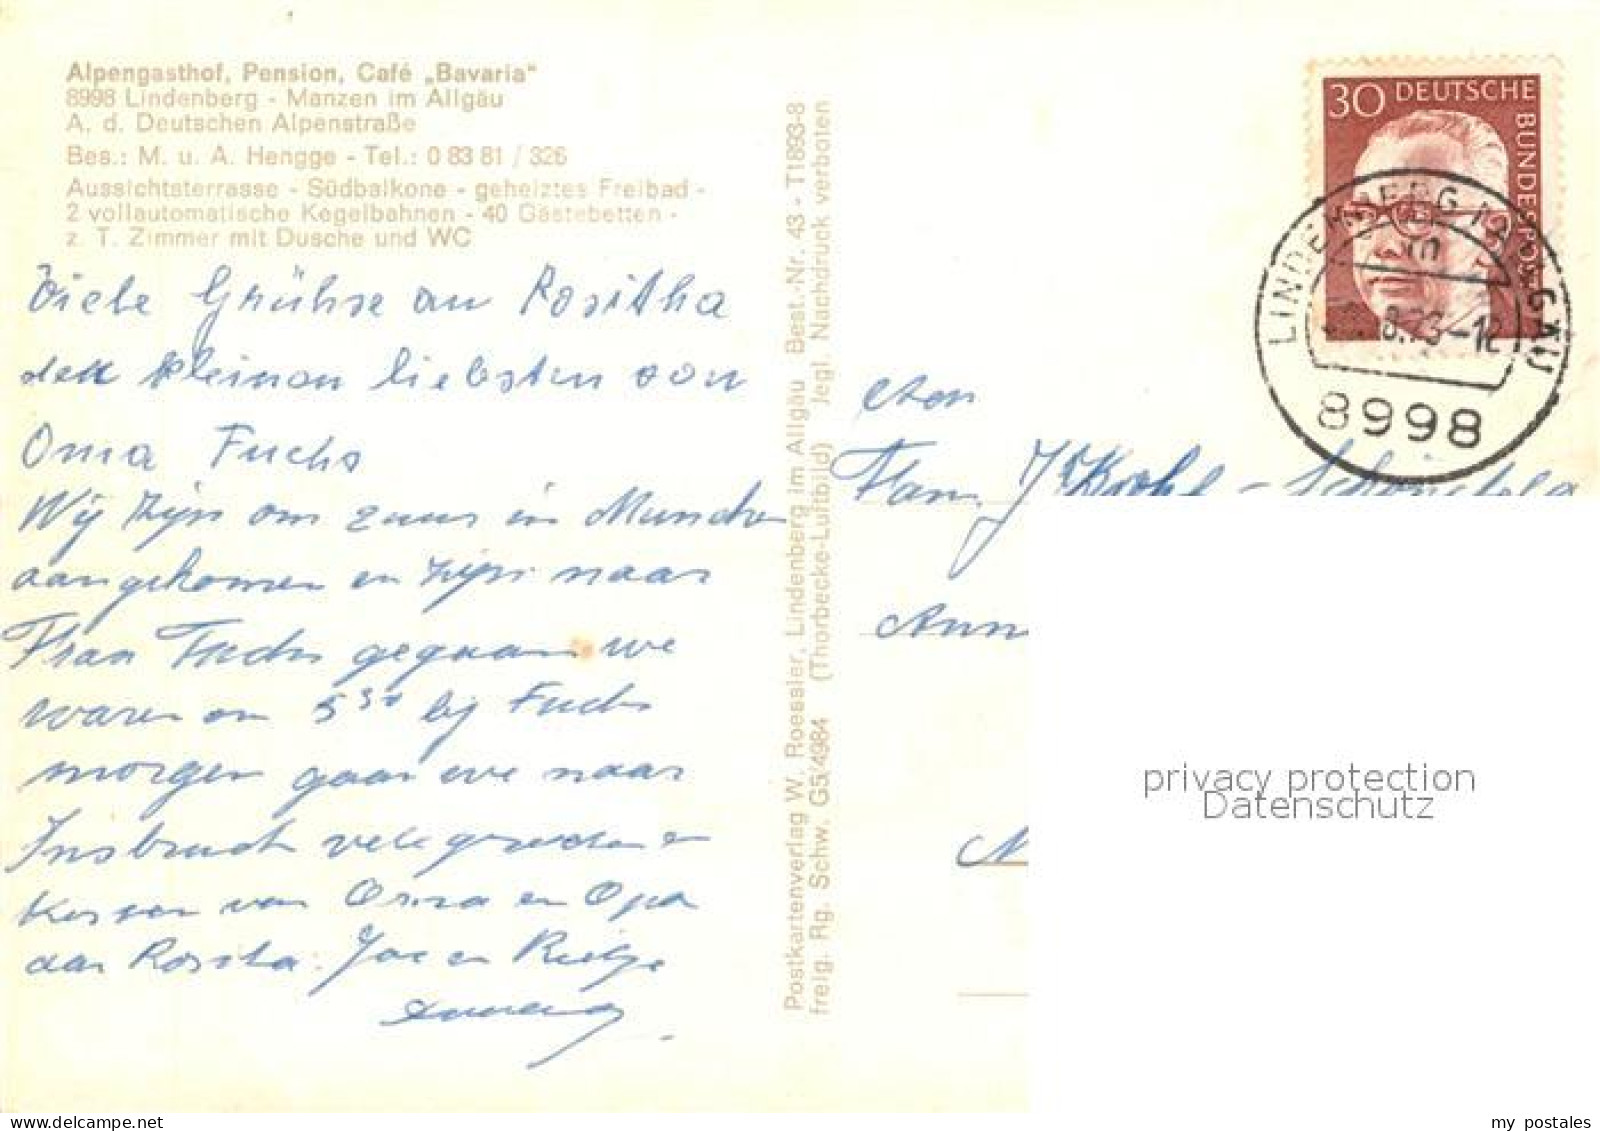 Alpengasthof, Pension, Café „Bavaria“
8998 Lindenberg - Manzen im Allgäu
A. d. Deutschen Alpenstraße
Bes.: M. u. A. Hengge - Tel.: 0 83 81 / 326
Aussichtsterrasse - Südbalkone - geheiztes Freibad -
2 vollautomatische Kegelbahnen - 40 Gästebetten -
z. T. Zimmer mit Dusche und WC
Viele Grühse an Rositha
den kleinen liebsten von
Oma Fuchs
Wij zijn om 2 uur in Munchen
aangekomen en zijn naar
Frau Fuchs gegaan we
waren om 5 30 bij Fuchs
morgen gaan we naar
Insbruch vele groeten en
kussen van Oma en Opa
aan Rosita.
Postkartenverlag W. Roessler, Lindenberg im Allgäu Best.-Nr. 43 - T1893-8
freig. Rg. Schw. G5/4984 (Thorbecke-Luftbild) Jegl. Nachdruck verboten
30 DEUTSCHE
BUNDESPOST
LINDENBERG IM ALLGÄU
8.73-12
8998
Fam.
privacy protection
Datenschutz
my postales